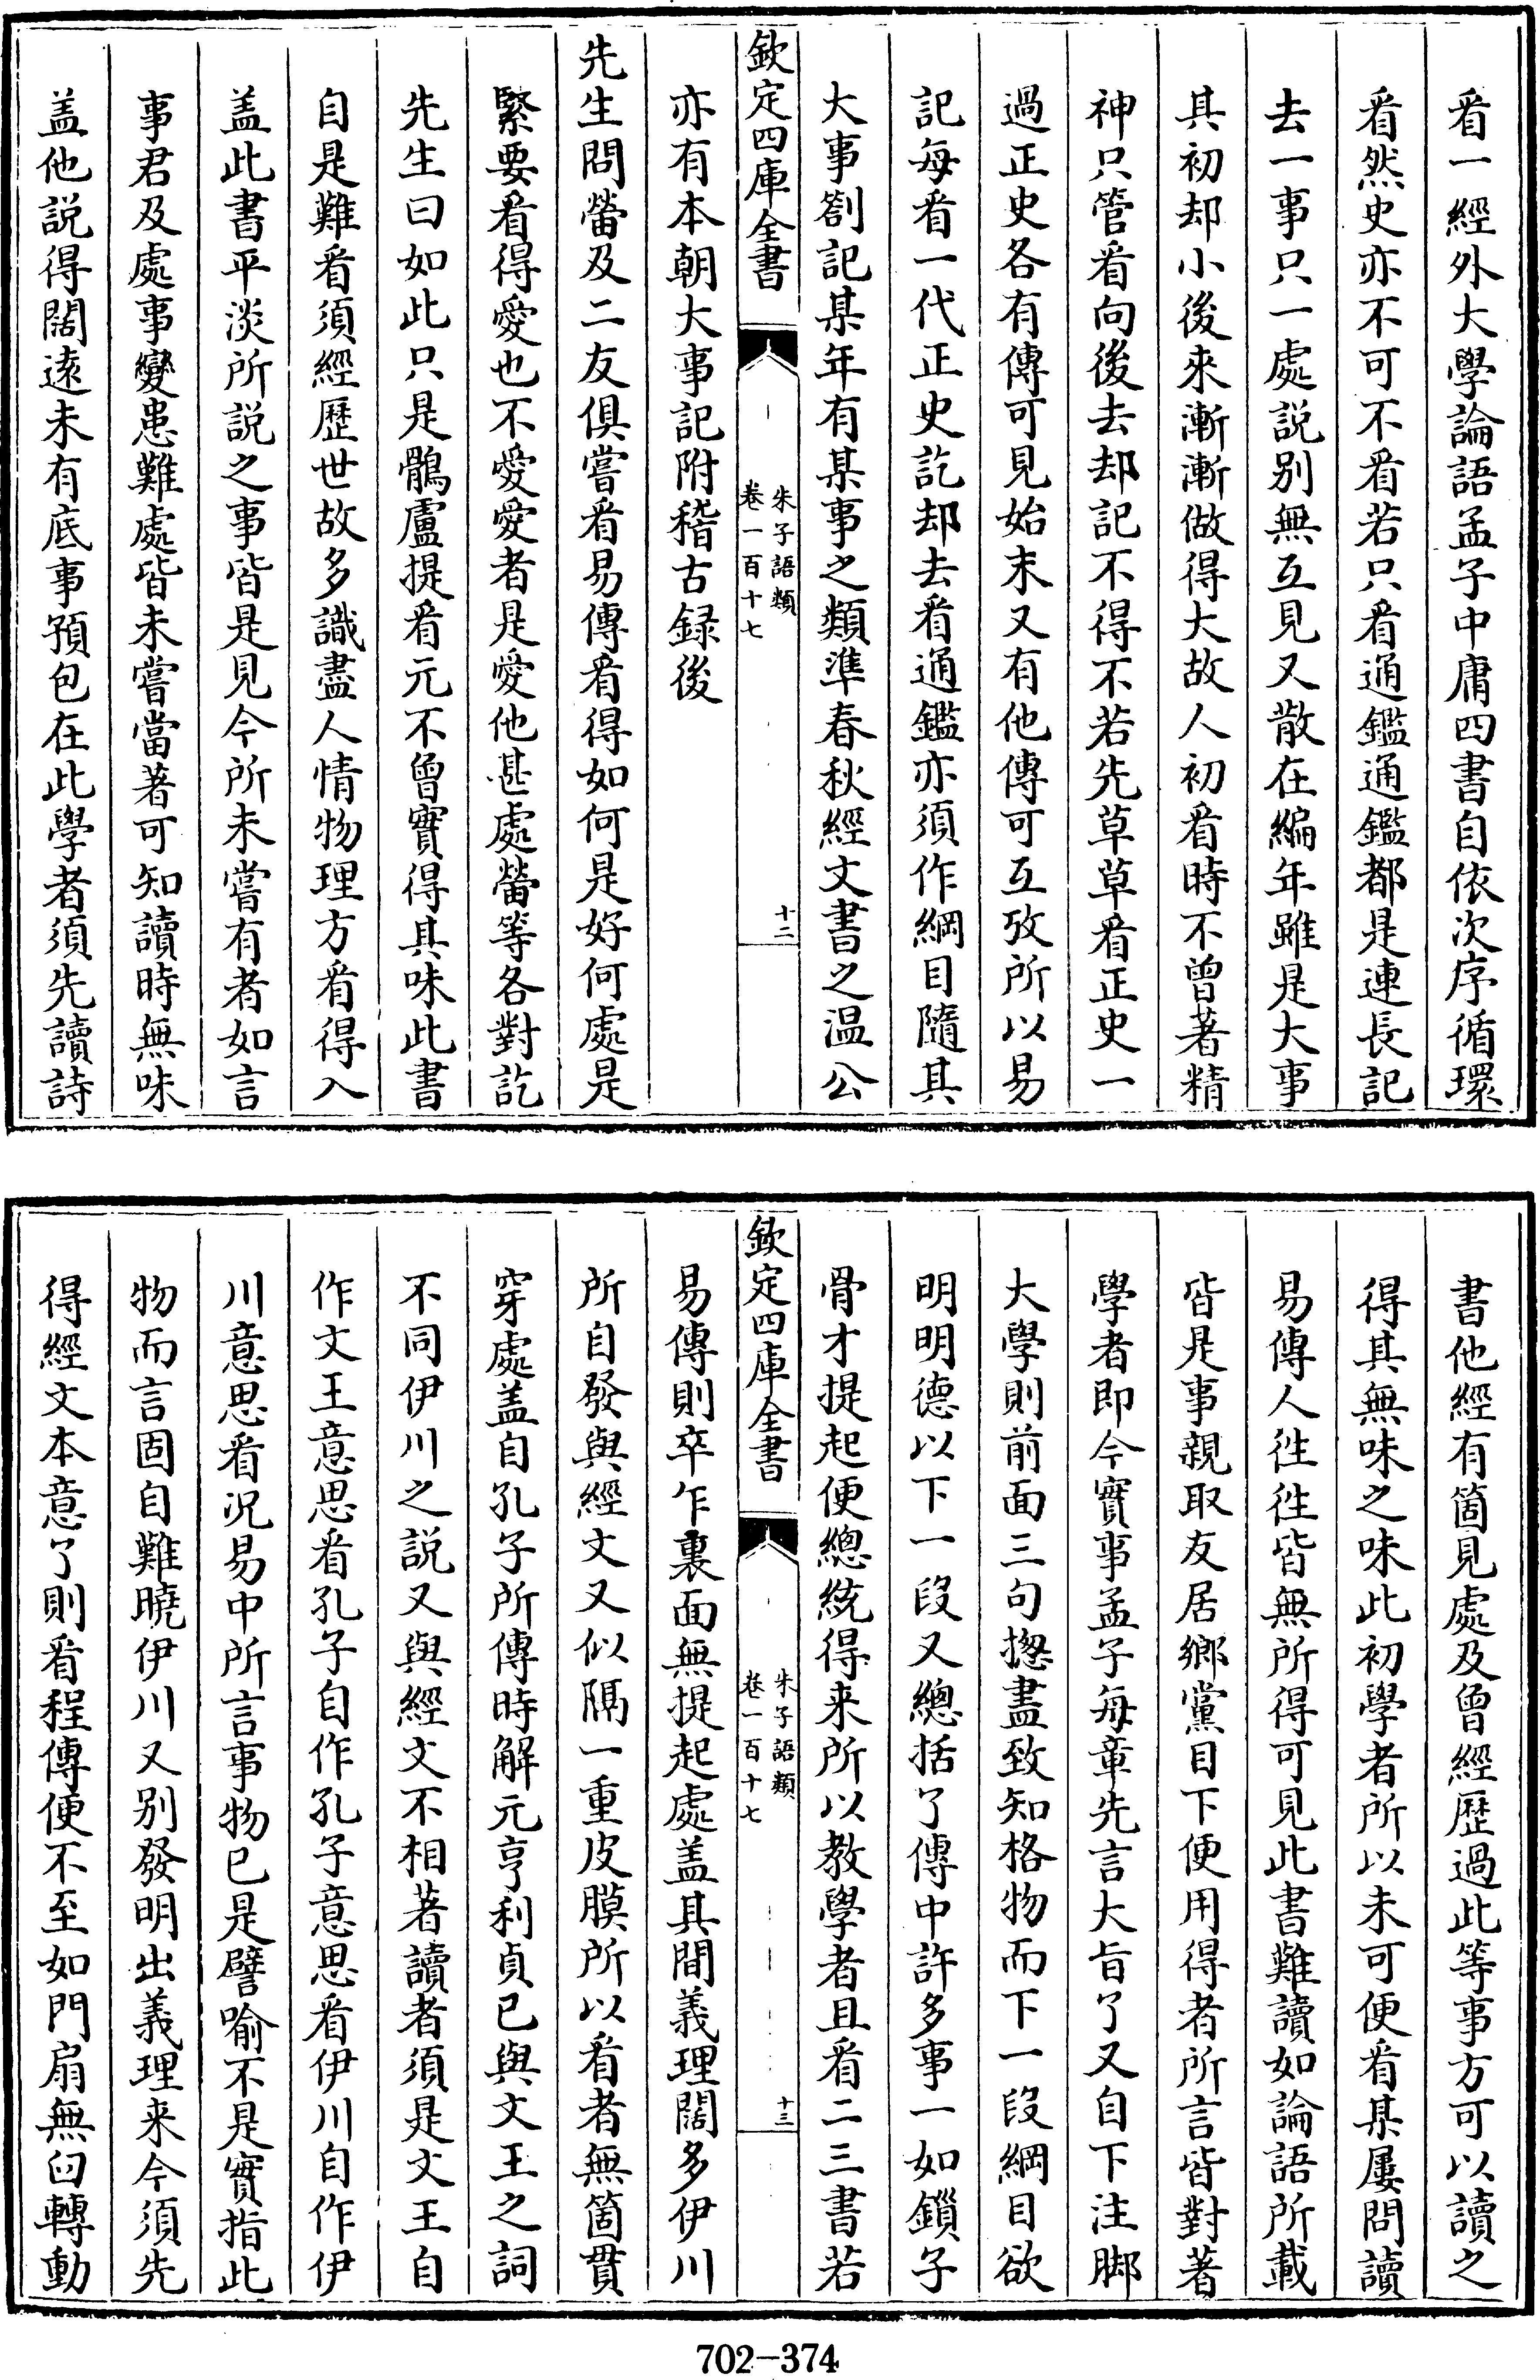 看一經外大學論語孟子中庸四書自依次序循環
看然史亦不可不看若只看通鑑通鑑都是連長記
去一事只一處説别無互見又散在編年雖是大事
其初却小後來漸漸做得大故人初看時不曾著精
神只管看向後去却記不得不若先草草看正史一
過正史各有傳可見始末又有他傳可互攷所以易
記每看一代正史訖却去看通鑑亦須作綱目隨其
大事劄記某年有某事之類準春秋經文書之温公
欽定四庫全書
朱子語類
卷一百十七
十二
亦有本朝大事記附稽古録後
先生問𤲞及二友俱嘗看易傳看得如何是好何處是
緊要看得愛也不愛愛者是愛他甚處𤲞等各對訖
先生曰如此只是鶻盧提看元不曾實得其味此書
自是難看須經歷世故多識盡人情物理方看得入
盖此書平淡所説之事皆是見今所未嘗有者如言
事君及處事變患難處皆未嘗當著可知讀時無味
盖他説得闊遠未有底事預包在此學者須先讀詩
書他經有箇見處及曾經歷過此等事方可以讀之
得其無味之味此初學者所以未可便看某屢問讀
易傳人徃徃皆無所得可見此書難讀如論語所載
皆是事親取友居鄉黨目下便用得者所言皆對著
學者即今實事孟子每章先言大旨了又自下注脚
大學則前面三句揔盡致知格物而下一段綱目欲
明明德以下一段又總括了傳中許多事一如鎖子
骨才提起便總統得来所以教學者且看二三書若
欽定四庫全書
朱子語類
卷一百十七
十三
易傳則卒乍裏面無提起處盖其間義理闊多伊川
所自發與經文又似隔一重皮膜所以看者無箇貫
穿處盖自孔子所傳時解元亨利貞已與文王之詞
不同伊川之説又與經文不相著讀者須是文王自
作文王意思看孔子自作孔子意思看伊川自作伊
川意思看况易中所言事物已是譬喻不是實指此
物而言固自難曉伊川又别發明出義理来今須先
得經文本意了則看程傳便不至如門扇無臼轉動
702-374